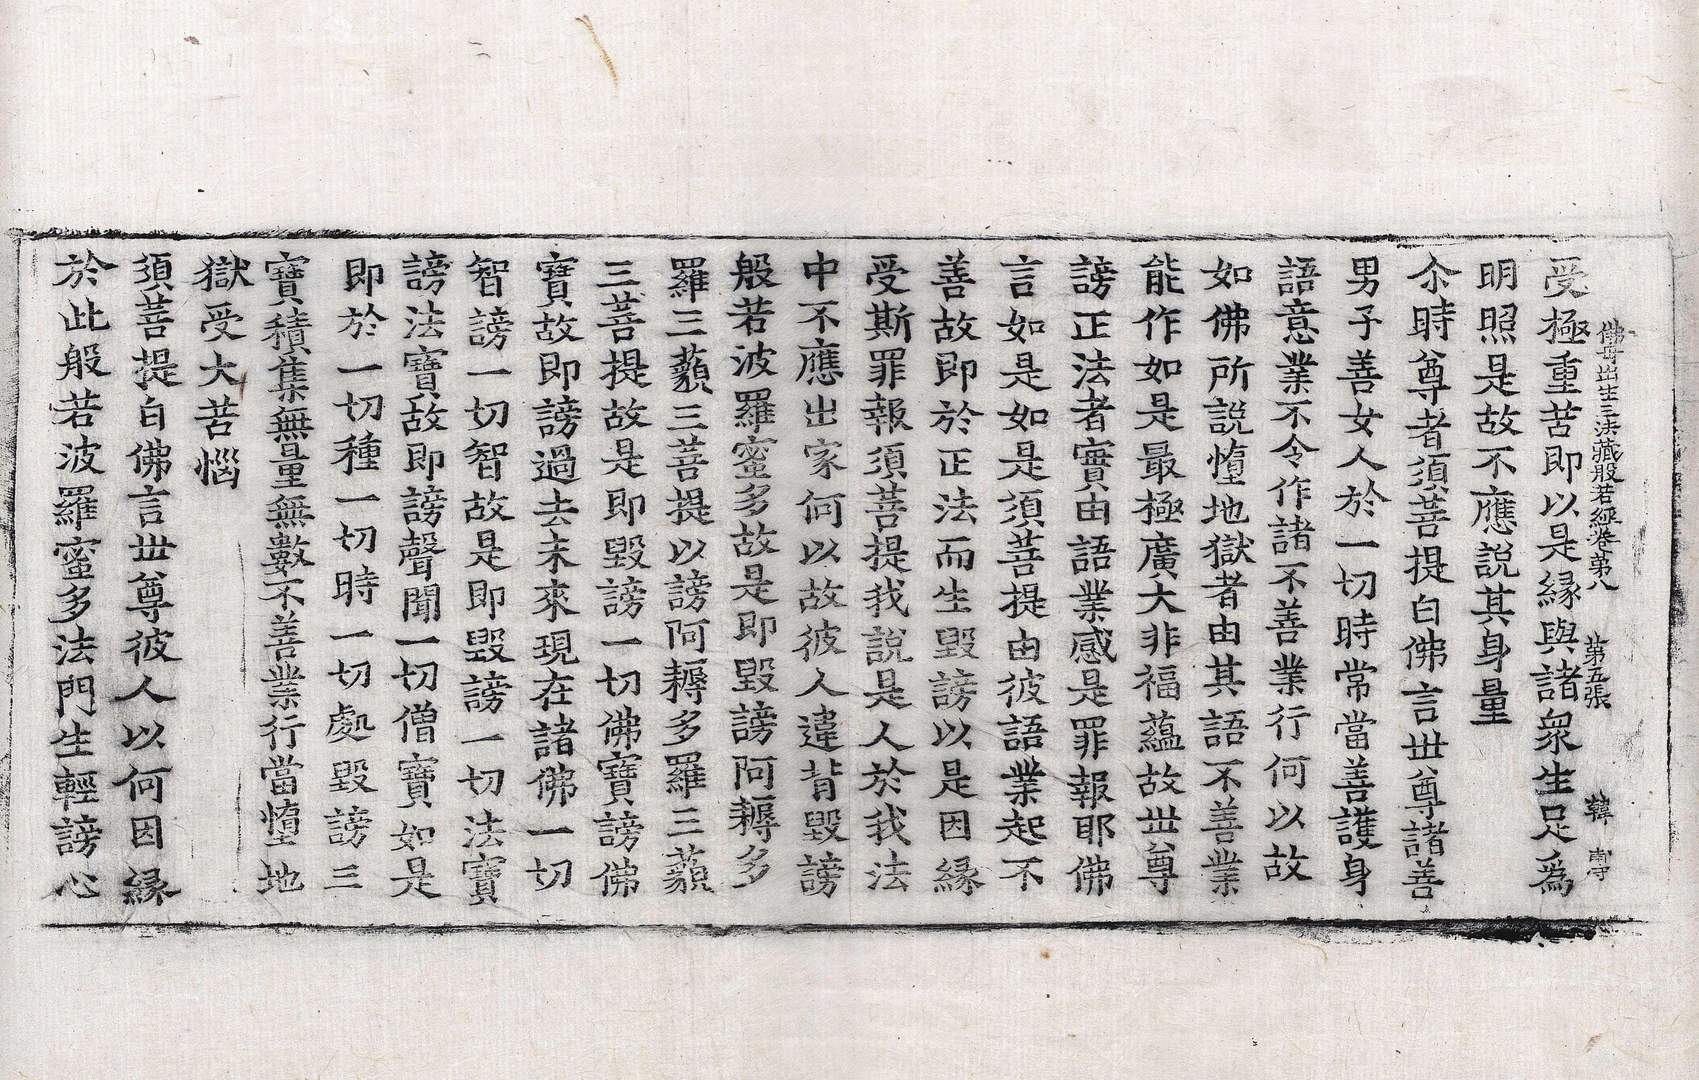 佛母出生三法藏般若經卷第八　第五張　韓
受極重苦即以是緣與諸衆生足爲
明照是故不應說其身量
尒時尊者須菩提白佛言世尊諸善
男子善女人於一切時常當善護身
語意業不令作諸不善業行何以故
如佛所說墮地獄者由其語不善業
能作如是最極廣大非福蘊故世尊
謗正法者實由語業感是罪報耶佛
言如是如是須菩提由彼語業起不
善故即於正法而生毀謗以是因緣
受斯罪報須菩提我說是人於我法
中不應出家何以故彼人違背毀謗
般若波羅蜜多故是即毀謗阿耨多
羅三藐三菩提以謗阿耨多羅三藐
三菩提故是即毀謗一切佛寶謗佛
寶故即謗過去未來現在諸佛一切
智謗一切智故是即毀謗一切法寶
謗法寶故即謗聲聞一切僧寶如是
即於一切種一切時一切處毀謗三
寶積集無量無數不善業行當墮地
獄受大苦惱
須菩提白佛言世尊彼人以何因緣
於此般若波羅蜜多法門生輕謗心